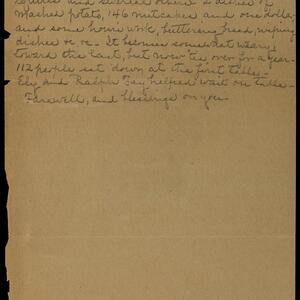 and several others 2 dishes of
mashed potato, 146 nutcakes and one dollar,
and some hours work, buttering bread, wiping
dishes & c. It becomes somewhat weary
toward the last, but now tis over for a year.
112 people sat down at the first table -
Ely and Ralph Fay helped wait on table -
Farewell, and blessings on you.